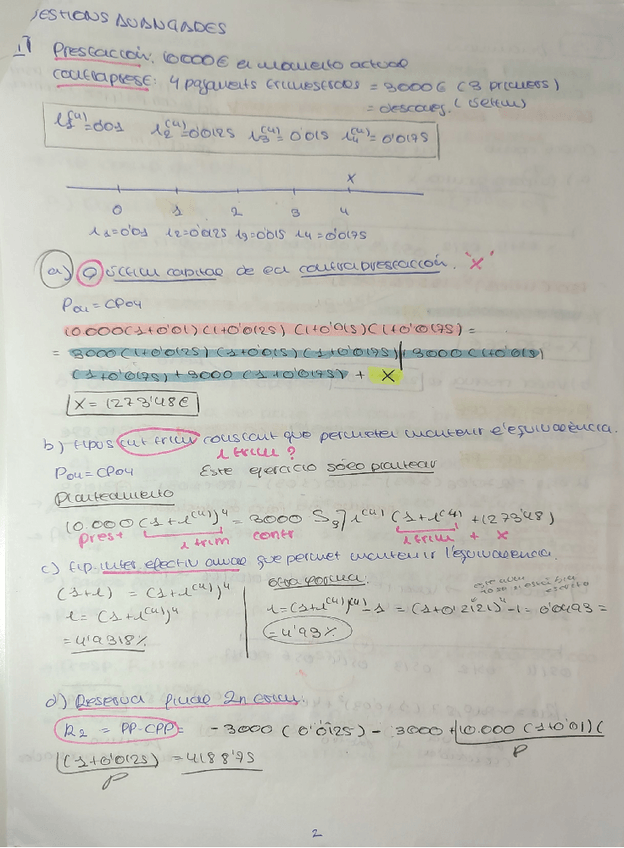 QÜESTIONS AVANÇADES
1) Prestación: 10000€ el momento actual
Contraprest: 4 pagaments trimestrals = 3000€ (3 primers)
= desconeg. (últim)
i₁⁽⁴⁾=0'01 i₂⁽⁴⁾=0'0125 i₃⁽⁴⁾=0'015 i₄⁽⁴⁾=0'0175
x
0 1 2 3 4
i1=0'01 i2=0'0125 i3=0'015 i4=0'0175
a) Últim capital de la contraprestación. "X"
P04 = CP04
10.000(1+0'01)(1+0'0125)(1+0'015)(1+0'0175) =
= 3000(1+0'0125)(1+0'015)(1+0'0175) + 3000(1+0'015)
(1+0'0175) + 3000(1+0'0175) + X
X = 1273'48€
b) tipus int trim constant que permetei mantenir l'equivalència.
i trim?
P04 = CP04 Este ejercicio sólo plantear
Planteamiento
10.000(1+i⁽⁴⁾)⁴ = 3000 S3┐i⁽⁴⁾ (1+i⁽⁴⁾) + 1273'48)
prest i trim contr i trim + x
c) tip. inter efectiu anual que permet mantenir l'equivalència.
(1+i) = (1+i⁽⁴⁾)⁴
i = (1+i⁽⁴⁾)⁴
= 4'9318%
otra forma.
i = (1+i⁽⁴⁾)⁴ - 1 = (1+0'0121)⁴ - 1 = 0'0493 =
= 4'93%
d) Reserva final 2n trim.
R2 = PP-CPP = -3000(0'0125) - 3000 + 10.000(1+0'01)(
(1+0'0125) = 4188'75
P
P
2